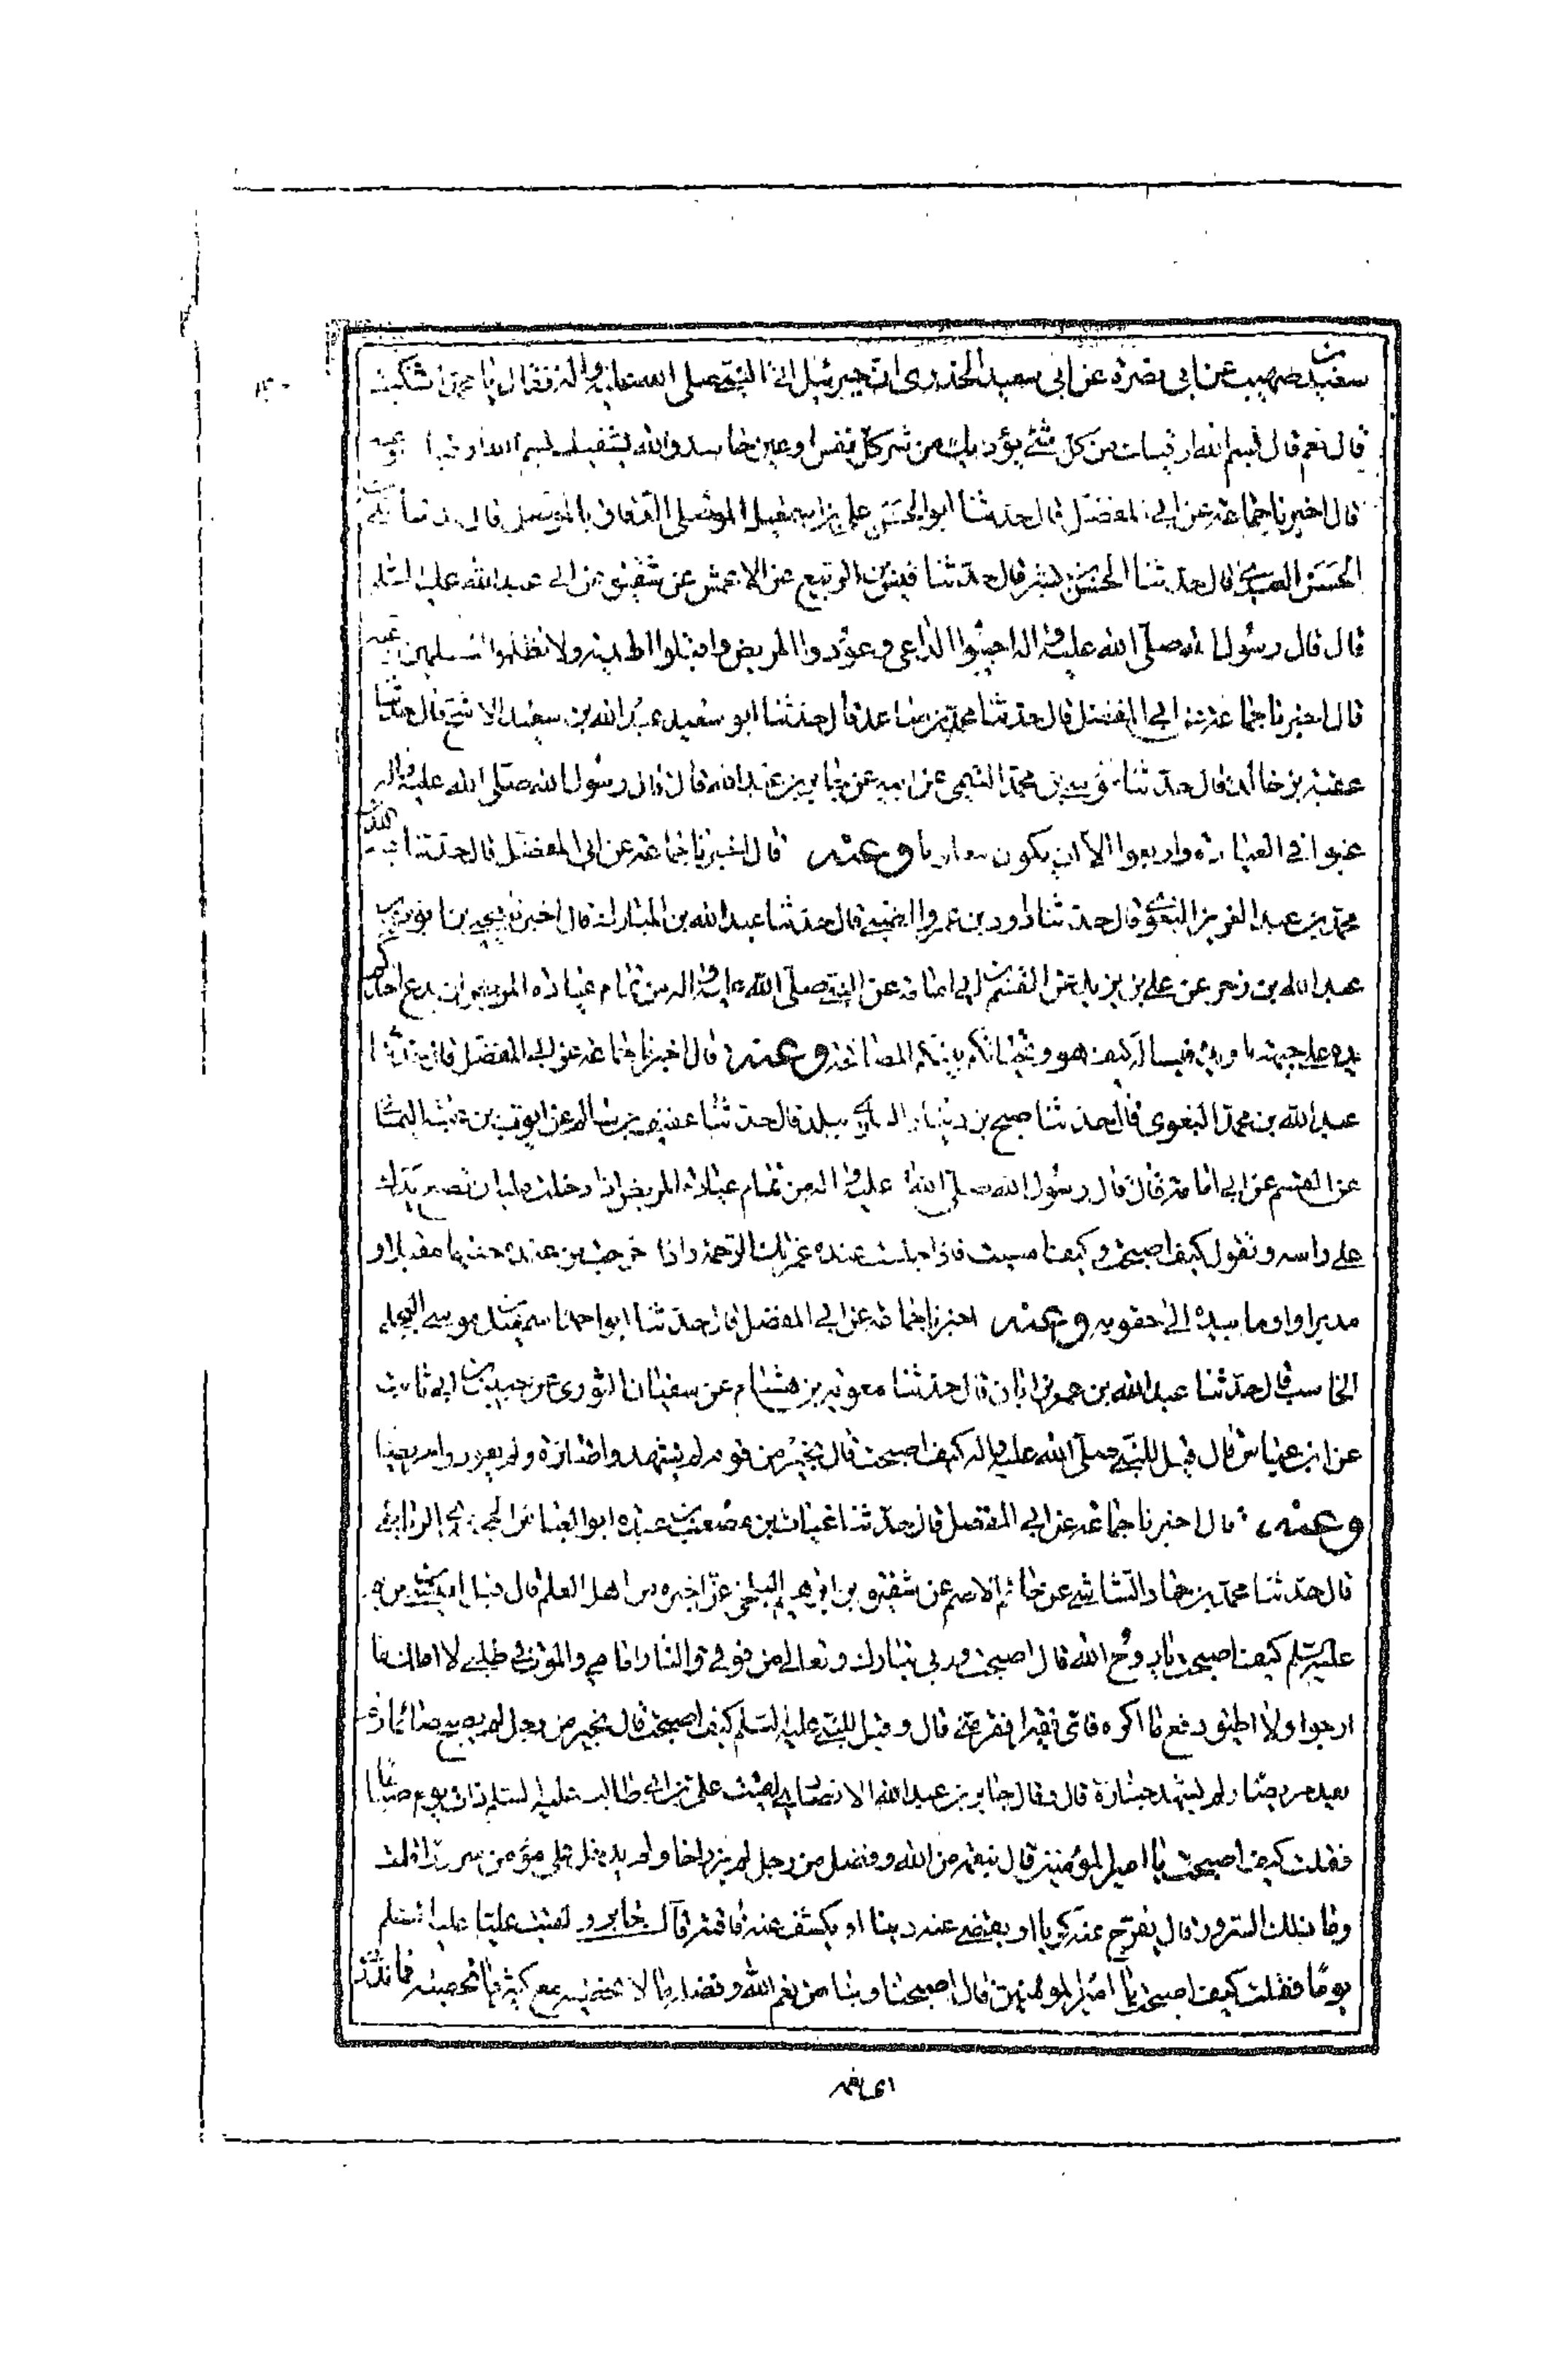 عن ابى نضرة عن ابى سعيد الخدرى ان جبرئيل اتى النبى صلى الله عليه واله فقال يا محمد اشتكيت
قال نعم قال بسم الله ارقيك من كل شئ يؤذيك من شر كل نفس او عين حاسد والله يشفيك بسم الله ارقيك
قال اخبرنا جماعة عن ابى المفضل قال حدثنا ابو الحسن على بن اسمعيل الموصلى الدقاق بالموصل قال حدثنا على بن
الحسن العبدى قال حدثنا الحسن بن بشر قال حدثنا قيس بن الربيع عن الاعمش عن شقيق عن ابى عبد الله عليه السلم
قال قال رسول الله صلى الله عليه واله اجيبوا الداعى وعودوا المريض واقبلوا الهدية ولا تظلموا المسلمين وعنه
قال اخبرنا جماعة عن ابى المفضل قال حدثنا محمد بن صاعد قال حدثنا ابو سعيد عبد الله بن سعيد الاشج قال حدثنا
عقبة بن خالد قال حدثنا موسى بن محمد التيمى عن ابيه عن جابر بن عبد الله قال قال رسول الله صلى الله عليه واله
اغبوا فى العيادة واربعوا الا ان يكون مغلوبا وعنه قال اخبرنا جماعة عن ابى المفضل قال حدثنا عبد الله
بن محمد بن عبد العزيز البغوى قال حدثنا داود بن عمرو الضبى قال حدثنا عبد الله بن المبارك قال اخبرنا يحيى بن ايوب
عبد الله بن زحر عن على بن يزيد عن القسم عن ابى امامة عن النبى صلى الله عليه واله من تمام عيادة المريض ان يدع احدكم
يده على جبهته او يده فيساله كيف هو وتحياتكم بينكم المصافحة وعنه قال اخبرنا جماعة عن ابى المفضل قال حدثنا
عبد الله بن محمد البغوى قال حدثنا صبح بن دينار ببلد قال حدثنا عفيف بن سالم عن ايوب بن عتبة
عن القسم عن ابى امامة قال قال رسول الله صلى الله عليه واله من تمام عيادة المريض اذا دخلت عليه ان تضع يدك
على راسه وتقول كيف اصبحت وكيف امسيت فاذا جلست عنده غمرتك الرحمة واذا خرجت من عنده خضتها مقبلا و
مدبرا واوما بيده الى حقويه وعنه اخبرنا جماعة عن ابى المفضل قال حدثنا ابو احمد اسمعيل بن موسى البجلى
الحاسب قال حدثنا عبد الله بن عمر بن ابان قال حدثنا معوية بن هشام عن سفيان الثورى عن حبيب بن ابى ثابت
عن ابن عباس قال قيل للنبى صلى الله عليه واله كيف اصبحت قال بخير من قوم لم يشهدوا جنازة ولم يعودوا مريضا
وعنه قال اخبرنا جماعة عن ابى المفضل قال حدثنا غياث بن مصعب بن عبده ابو العباس الخجندى
قال حدثنا محمد بن حماد الشاشى عن حاتم الاصم عن شقيق بن ابرهيم البلخى عمن اخبره من اهل العلم قال قيل لعيسى بن مريم
عليه السلم كيف اصبحت يا روح الله قال اصبحت وربى تبارك وتعالى من فوقى والنار امامى والموت فى طلبى لا املك ما
ارجوا ولا اطيق دفع ما اكره فاى فقير افقر منى قال وقيل للنبى عليه السلم كيف اصبحت قال بخير من رجل لم يصبح صائما و
لم يعد مريضا ولم يشهد جنازة قال وقال جابر بن عبد الله الانصارى لقيت على بن ابى طالب عليه السلم ذات يوم صباحا
فقلت كيف اصبحت يا امير المؤمنين قال بنعمة من الله وفضل من رجل لم يزر اخا ولم يدخل على مؤمن سرورا قلت
وما ذلك السرور قال يفرج عنه كربا او يقضى عنه دينا او يكشف عنه فاقته قال جابر ولقيت عليا عليه السلم
يوما فقلت كيف اصبحت يا امير المؤمنين قال اصبحنا وبنا من نعم الله وفضله ما لا نحصيه مع كثير ما نحصيه فما ندرى